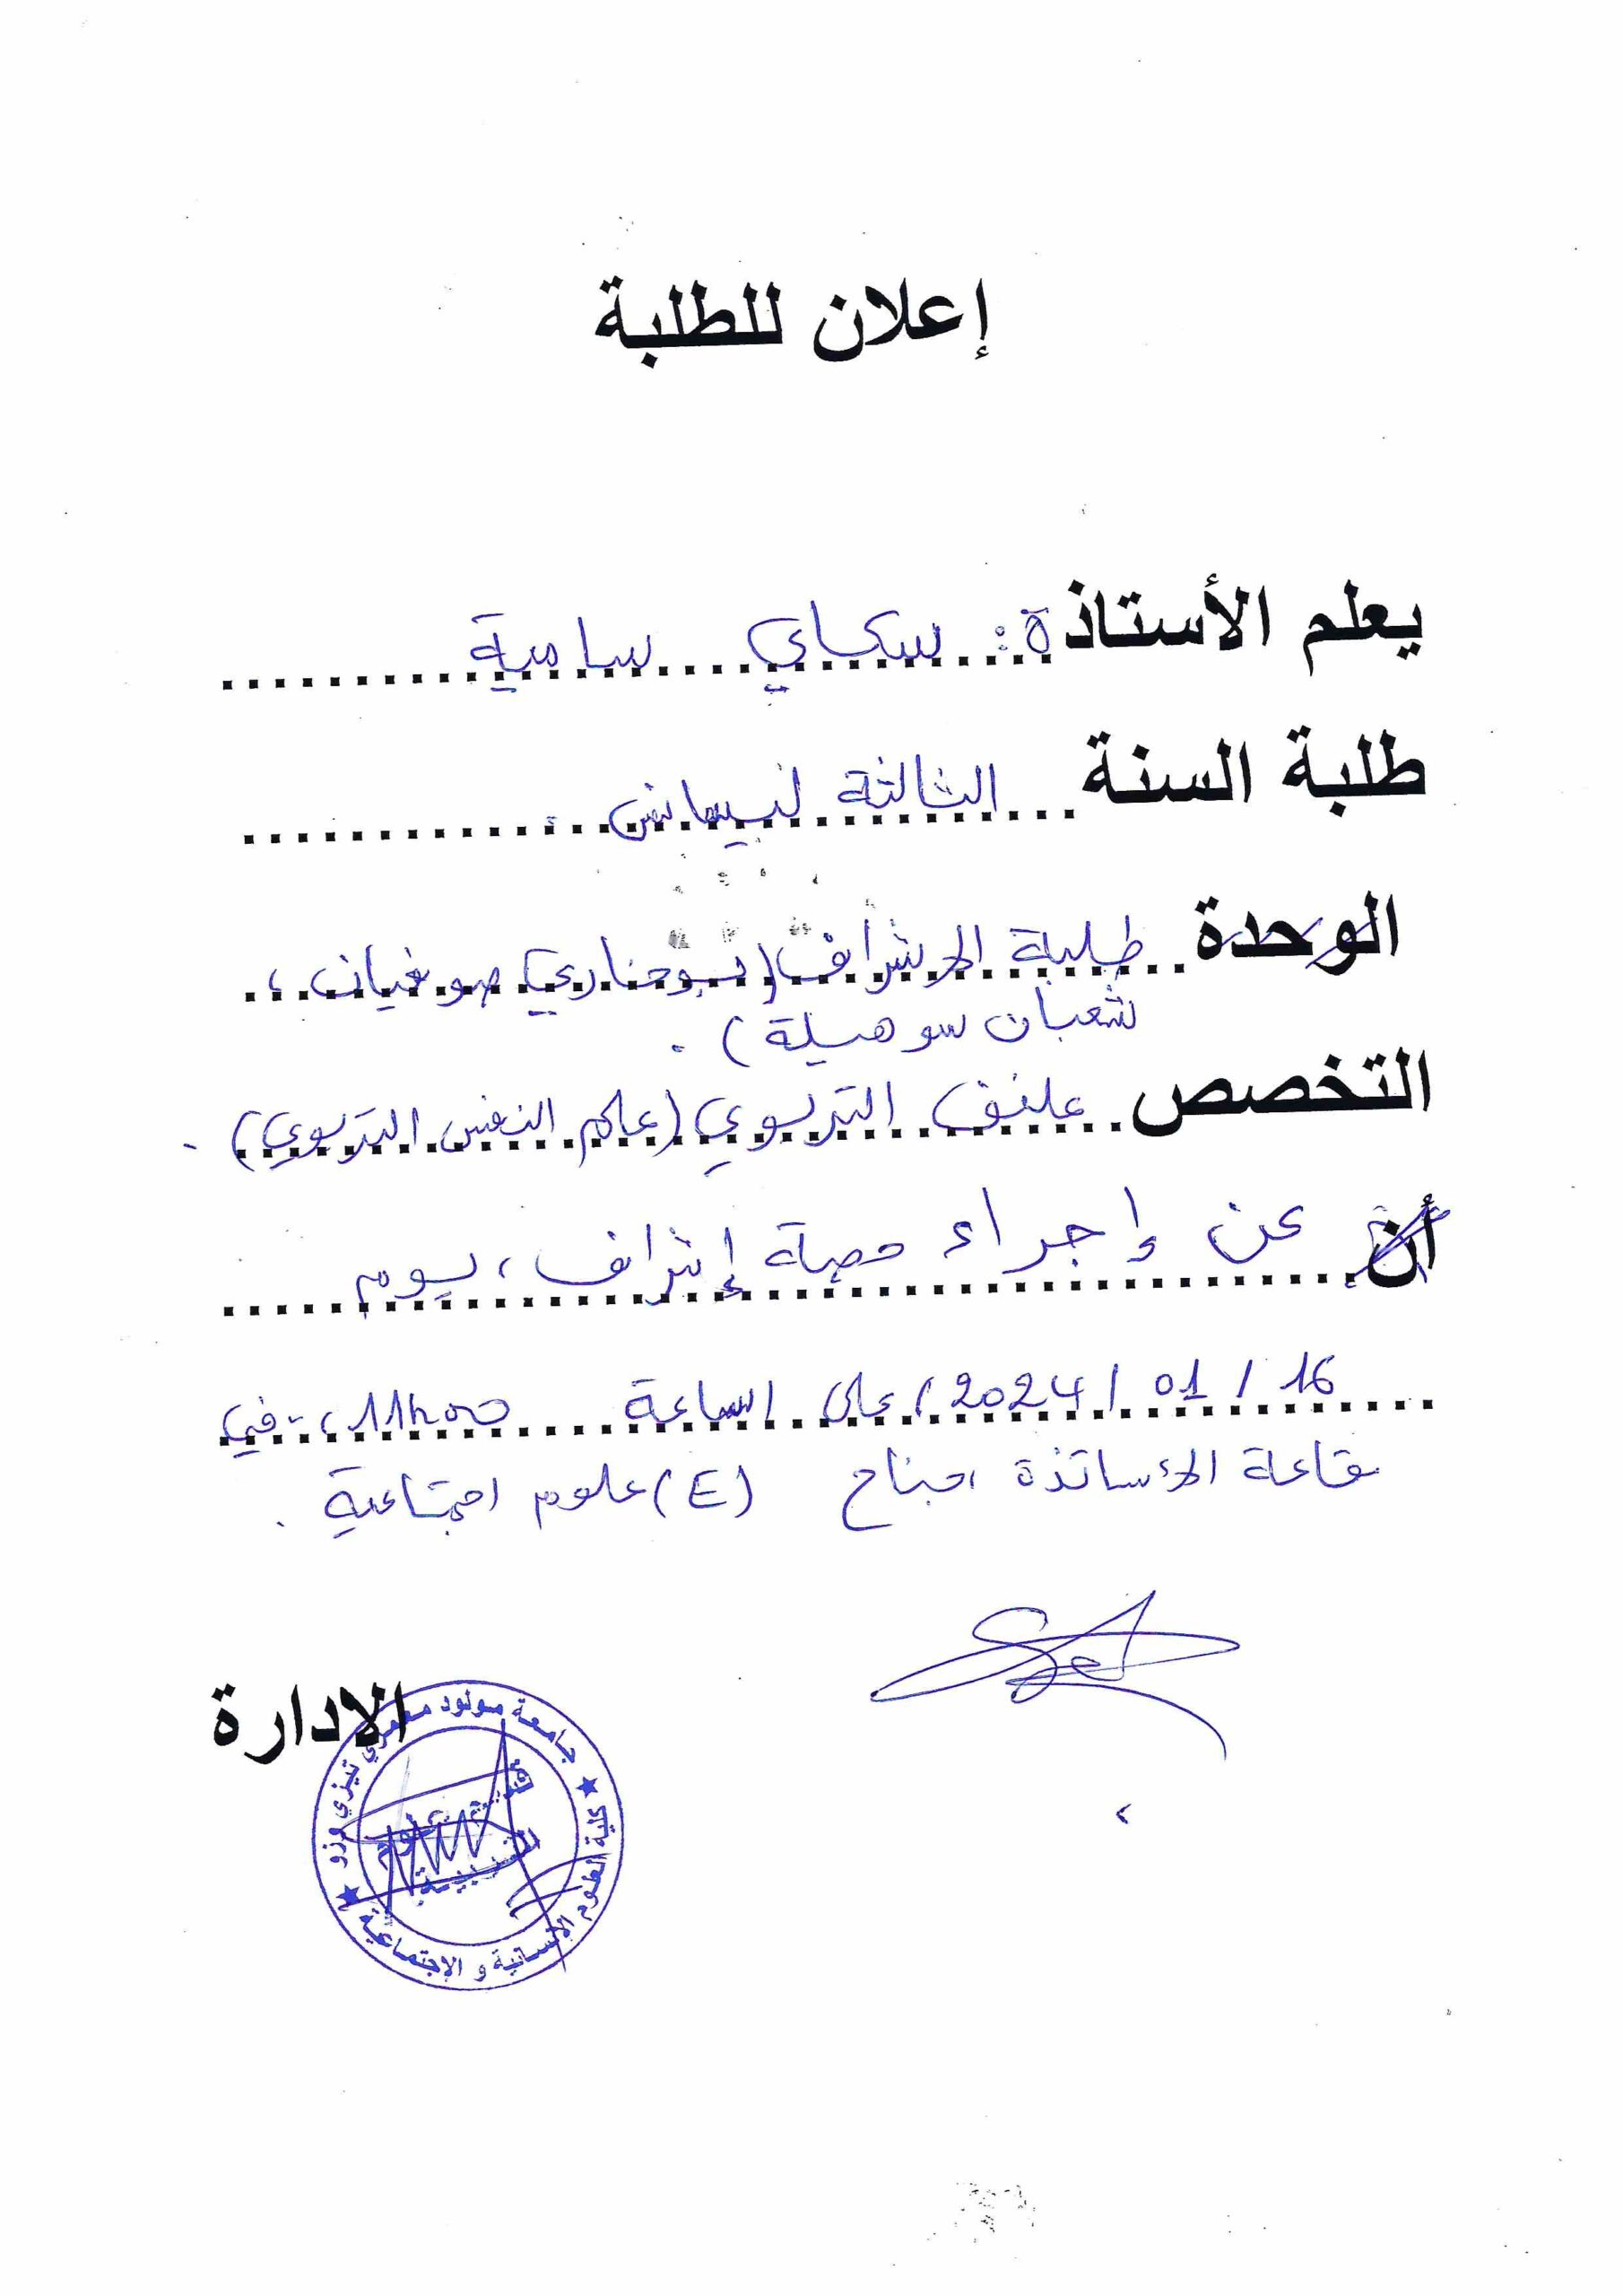 إعلان للطلبة
يعلم الأستاذة: سكاي سامية
طلبة السنة الثالثة ليسانس.
الوحدة طلبة الإشراف (بوحناري صوفيان،
شعبان سوهيلة).
التخصص علنف التربوي (علم النفس التربوي).
أن عن إجراء حصة إشراف، يوم
16 / 01 / 2024، على الساعة 11h00، في
قاعة الأساتذة، جناح (E) علوم اجتماعية.
الادارة
جامعة مولود معمري تيزي وزو
كلية العلوم الإنسانية و الإجتماعية